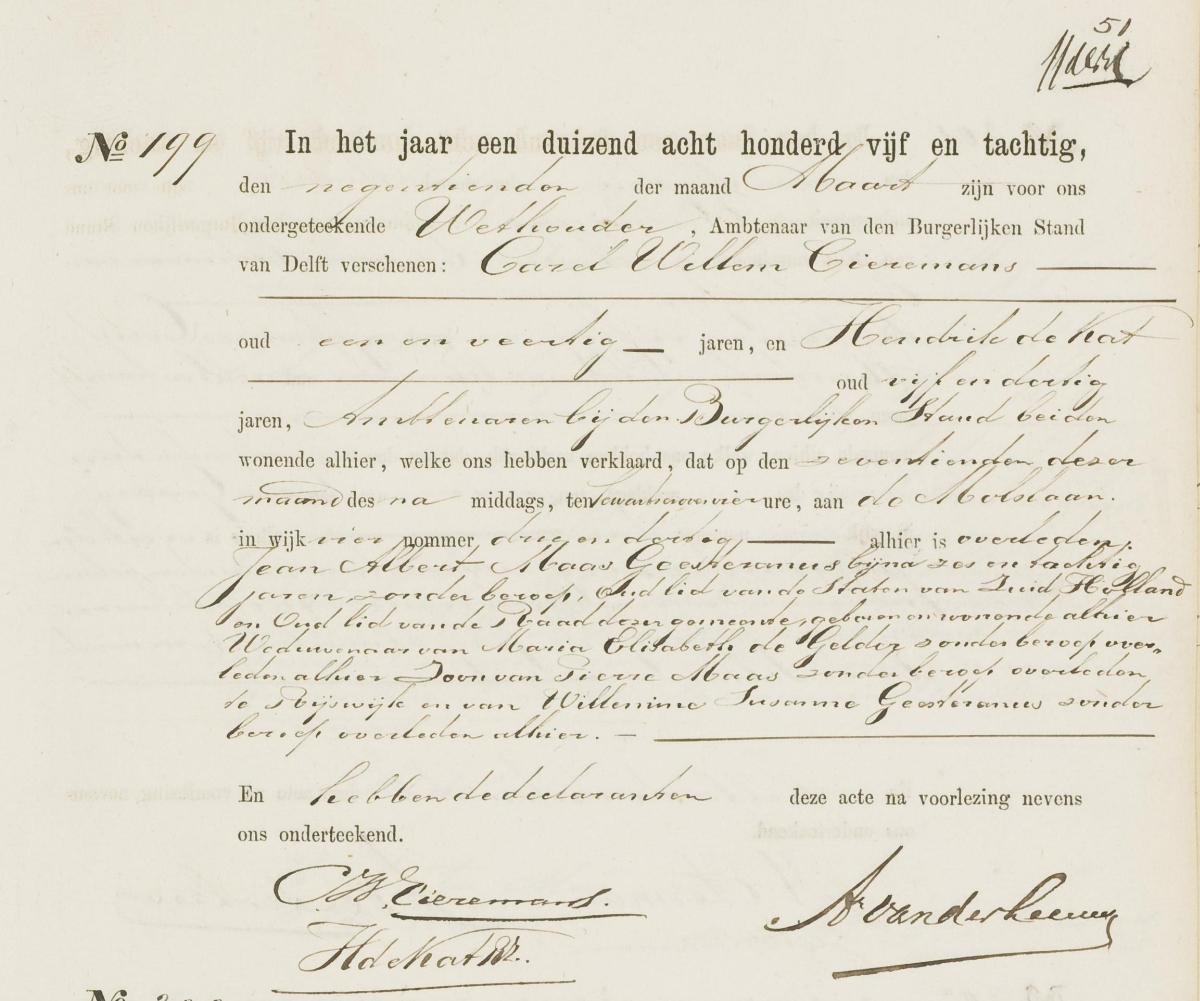 51
No 199 In het jaar een duizend acht honderd vijf en tachtig,
den negentienden der maand Maart zijn voor ons
ondergeteekende Wethouder, Ambtenaar van den Burgerlijken Stand
van Delft verschenen: Carel Willem Cieremans
oud een en veertig jaren, en Hendrik de Kat
oud vijf en dertig
jaren, Ambtenaren bij den Burgerlijken Stand beiden
wonende alhier, welke ons hebben verklaard, dat op den zeventienden dezer
maand des na middags, ten kwart voor vier ure, aan de Molslaan.
in wijk vier nommer drie en dertig alhier is overleden,
Jean Albert Maas Geesteranus bijna zes en tachtig
jaren, zonder beroep, Oud lid van de Staten van Zuid Holland
en Oud lid van de Raad dezer gemeente, geboren en wonende alhier
Weduwenaar van Maria Elisabeth de Gelder zonder beroep over„
leden alhier Zoon van Pierre Maas zonder beroep overleden
te Rijswijk en van Willemine Susanne Geesteranus zonder
beroep overleden alhier.
En hebben de declaranten deze acte na voorlezing nevens
ons onderteekend.
C.W. Cieremans.
A vanderLeeuw
H de Kat
No